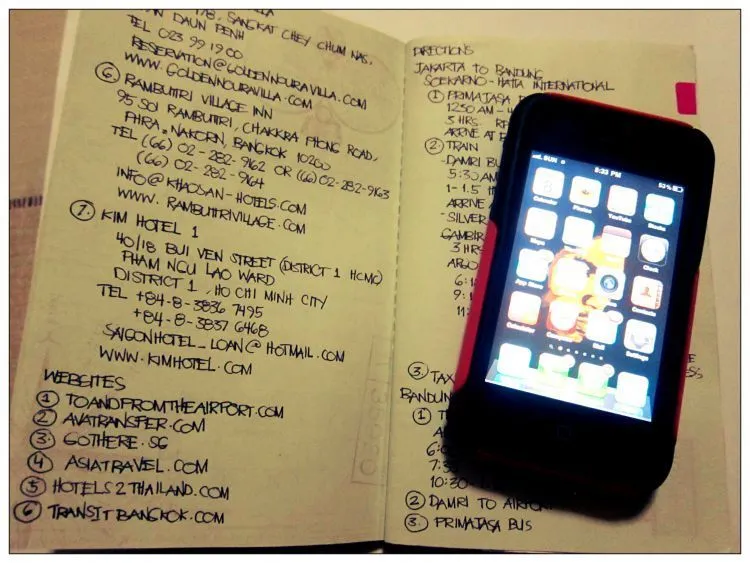 178, SANGKAT CHEY CHUM NAS,
DAUN PENH
TEL 023 99 19 00
RESERVATION@GOLDENNOURAVILLA.COM
WWW.GOLDENNOURAVILLA.COM
6. RAMBUTTRI VILLAGE INN
95 SOI RAMBUTTRI, CHAKKRA PHONG ROAD,
PHRA NAKORN, BANGKOK 10200
TEL (66) 02-282-9162 OR (66) 02-282-9163
(66) 02-282-9164
INFO@KHAOSAN-HOTELS.COM
WWW.RAMBUTTRIVILLAGE.COM
7. KIM HOTEL 1
40/18 BUI VEN STREET (DISTRICT 1 HCMC)
PHAM NGU LAO WARD
DISTRICT 1, HO CHI MINH CITY
TEL +84-8-3836 7495
+84-8-3837 6468
SAIGONHOTEL_LOAN@HOTMAIL.COM
WWW.KIMHOTEL.COM
WEBSITES
1 TOANDFROMTHEAIRPORT.COM
2 AVATRANSFER.COM
3. GOTHERE.SG
4 ASIATRAVEL.COM
5 HOTELS2THAILAND.COM
6 TRANSITBANGKOK.COM
DIRECTIONS
JAKARTA TO BANDUNG
SOEKARNO-HATTA INTERNATIONAL
1 PRIMAJASA
1250 AM -
3 HRS.
ARRIVE AT
2 TRAIN
-DAMRI BU
5:30 AM
1-1.5 H
ARRIVE
-SILVER
GAMBIR
3 HRS
ARGO
6:
9:
11:
3. TAX
BANDUN
1 T
6:0
7:3
10:30
2 DAMRI TO AIRPORT
3. PRIMAJASA BUS
SUN
8:33 PM
53%
Calendar
Photos
YouTube
Stocks
Maps
Clock
App Store
Contacts
Calculator
Compass
Mail
Settings